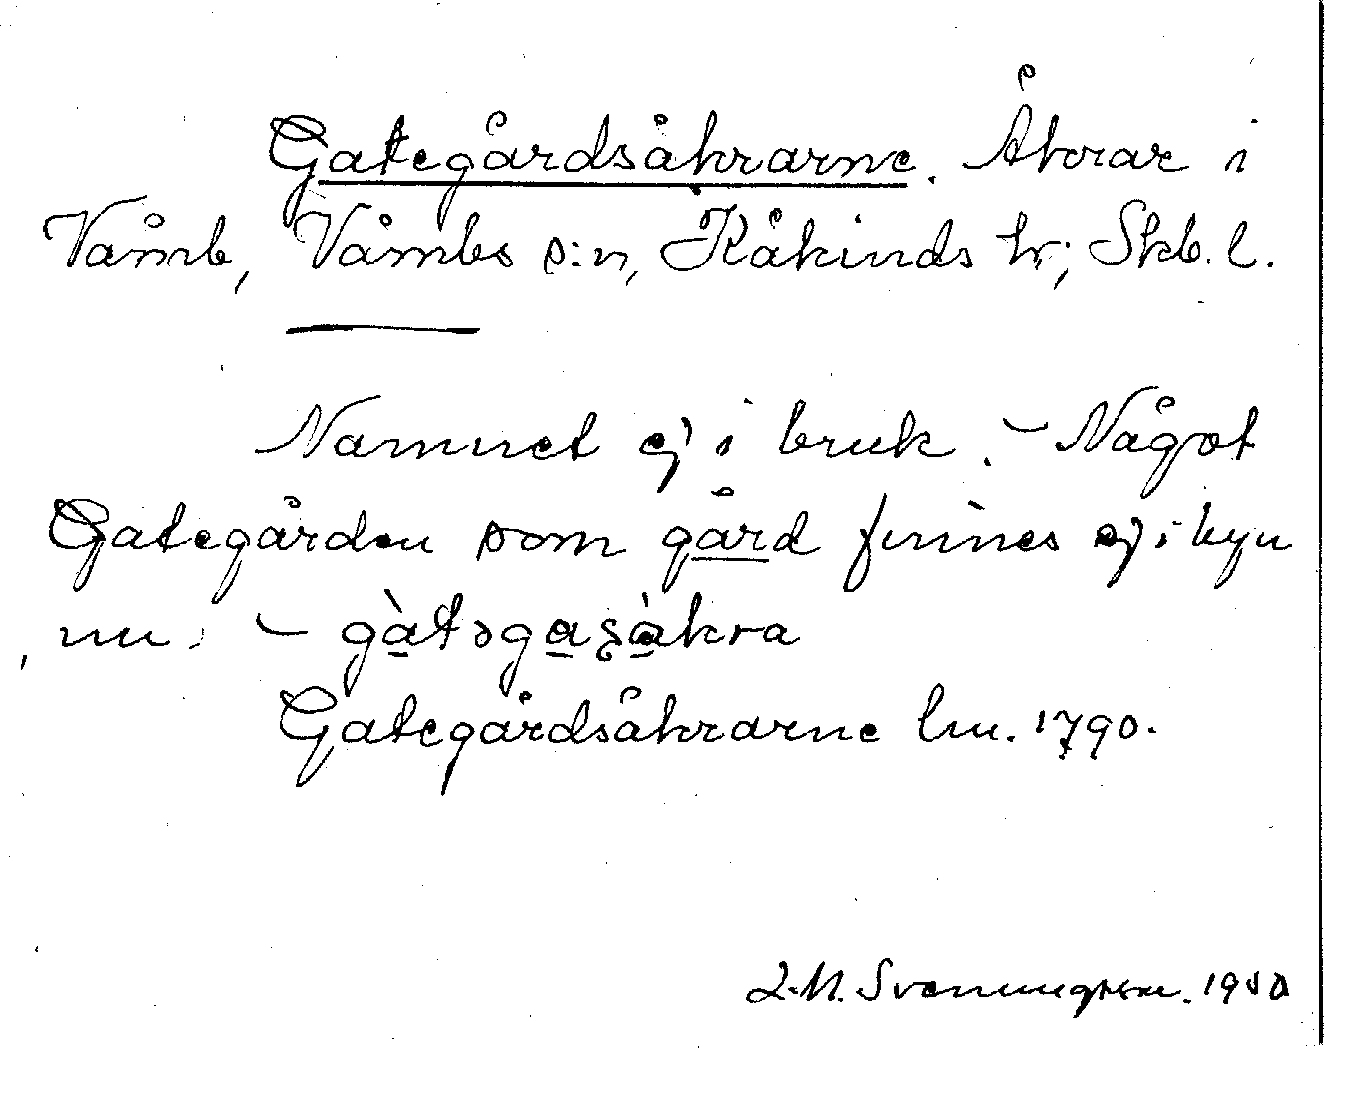 Gategårdsåkrarne. Åkrar i
Våmb, Våmbs s:n, Kåkinds hr; Skb. l.
Namnet ej i bruk. – Något
Gategården som gård finnes ej i byn
nu. – gàtəgaʂàkra
Gategårdsåkrarne lm. 1790.
L.M. Svenungsson. 1950